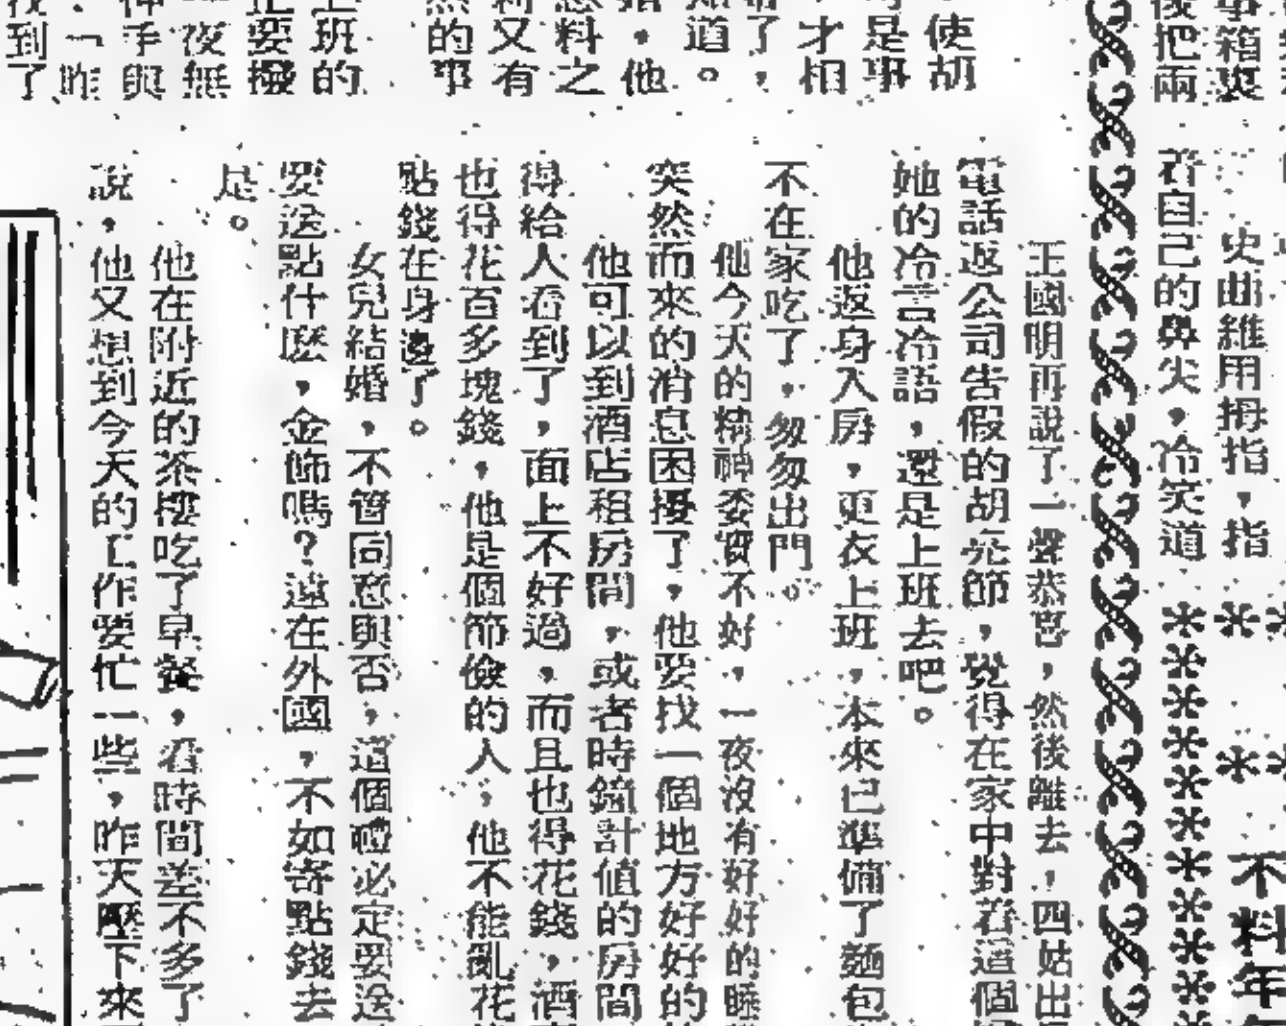 事箱裝
後把兩
史曲維用拇指，指
着自己的鼻尖，冷笑道
＊＊
＊＊＊＊＊＊＊＊＊＊
不料年
使胡
是事
才相
了，
道。
，他
料之
又有
的事
班的
要撥
夜無
手與
一昨
到了
王國明再說了一聲恭喜，然後離去，四姑出
電話返公司告假的胡亮節，覺得在家中對着這個
她的冷言冷語，還是上班去吧。
他返身入房，更衣上班，本來已準備了麵包
不在家吃了，匆匆出門。
他今天的精神委實不好，一夜沒有好好的睡
突然而來的消息困擾了，他要找一個地方好好的
他可以到酒店租房間，或者時鐘計值的房間
得給人看到了，面上不好過，而且也得花錢，酒
也得花百多塊錢，他是個節儉的人，他不能亂花
點錢在身邊了。
女兒結婚，不管同意與否，這個禮必定要送
要送點什麽，金飾嗎？遠在外國，不如寄點錢去
是。
他在附近的茶樓吃了早餐，看時間差不多了
說，他又想到今天的工作要忙一些，昨天壓下來